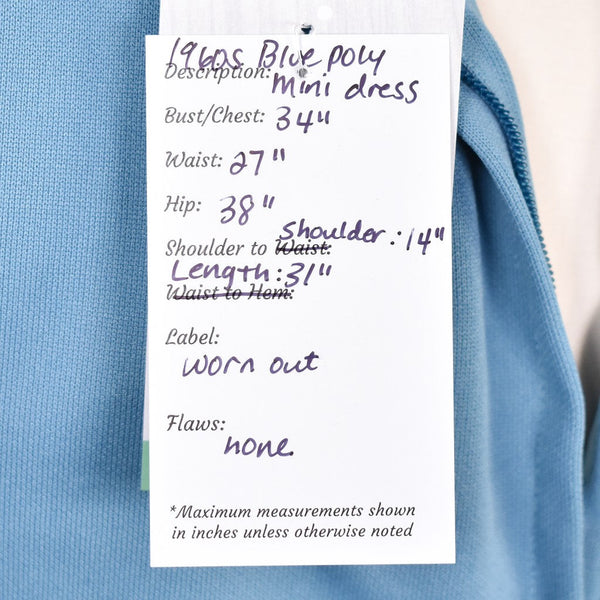 1960s Blue poly
Description: mini dress
Bust/Chest: 34"
Waist: 27"
Hip: 38"
Shoulder to Waist: Shoulder: 14"
Length: 31"
Waist to Hem:
Label:
worn out
Flaws:
none
*Maximum measurements shown
in inches unless otherwise noted